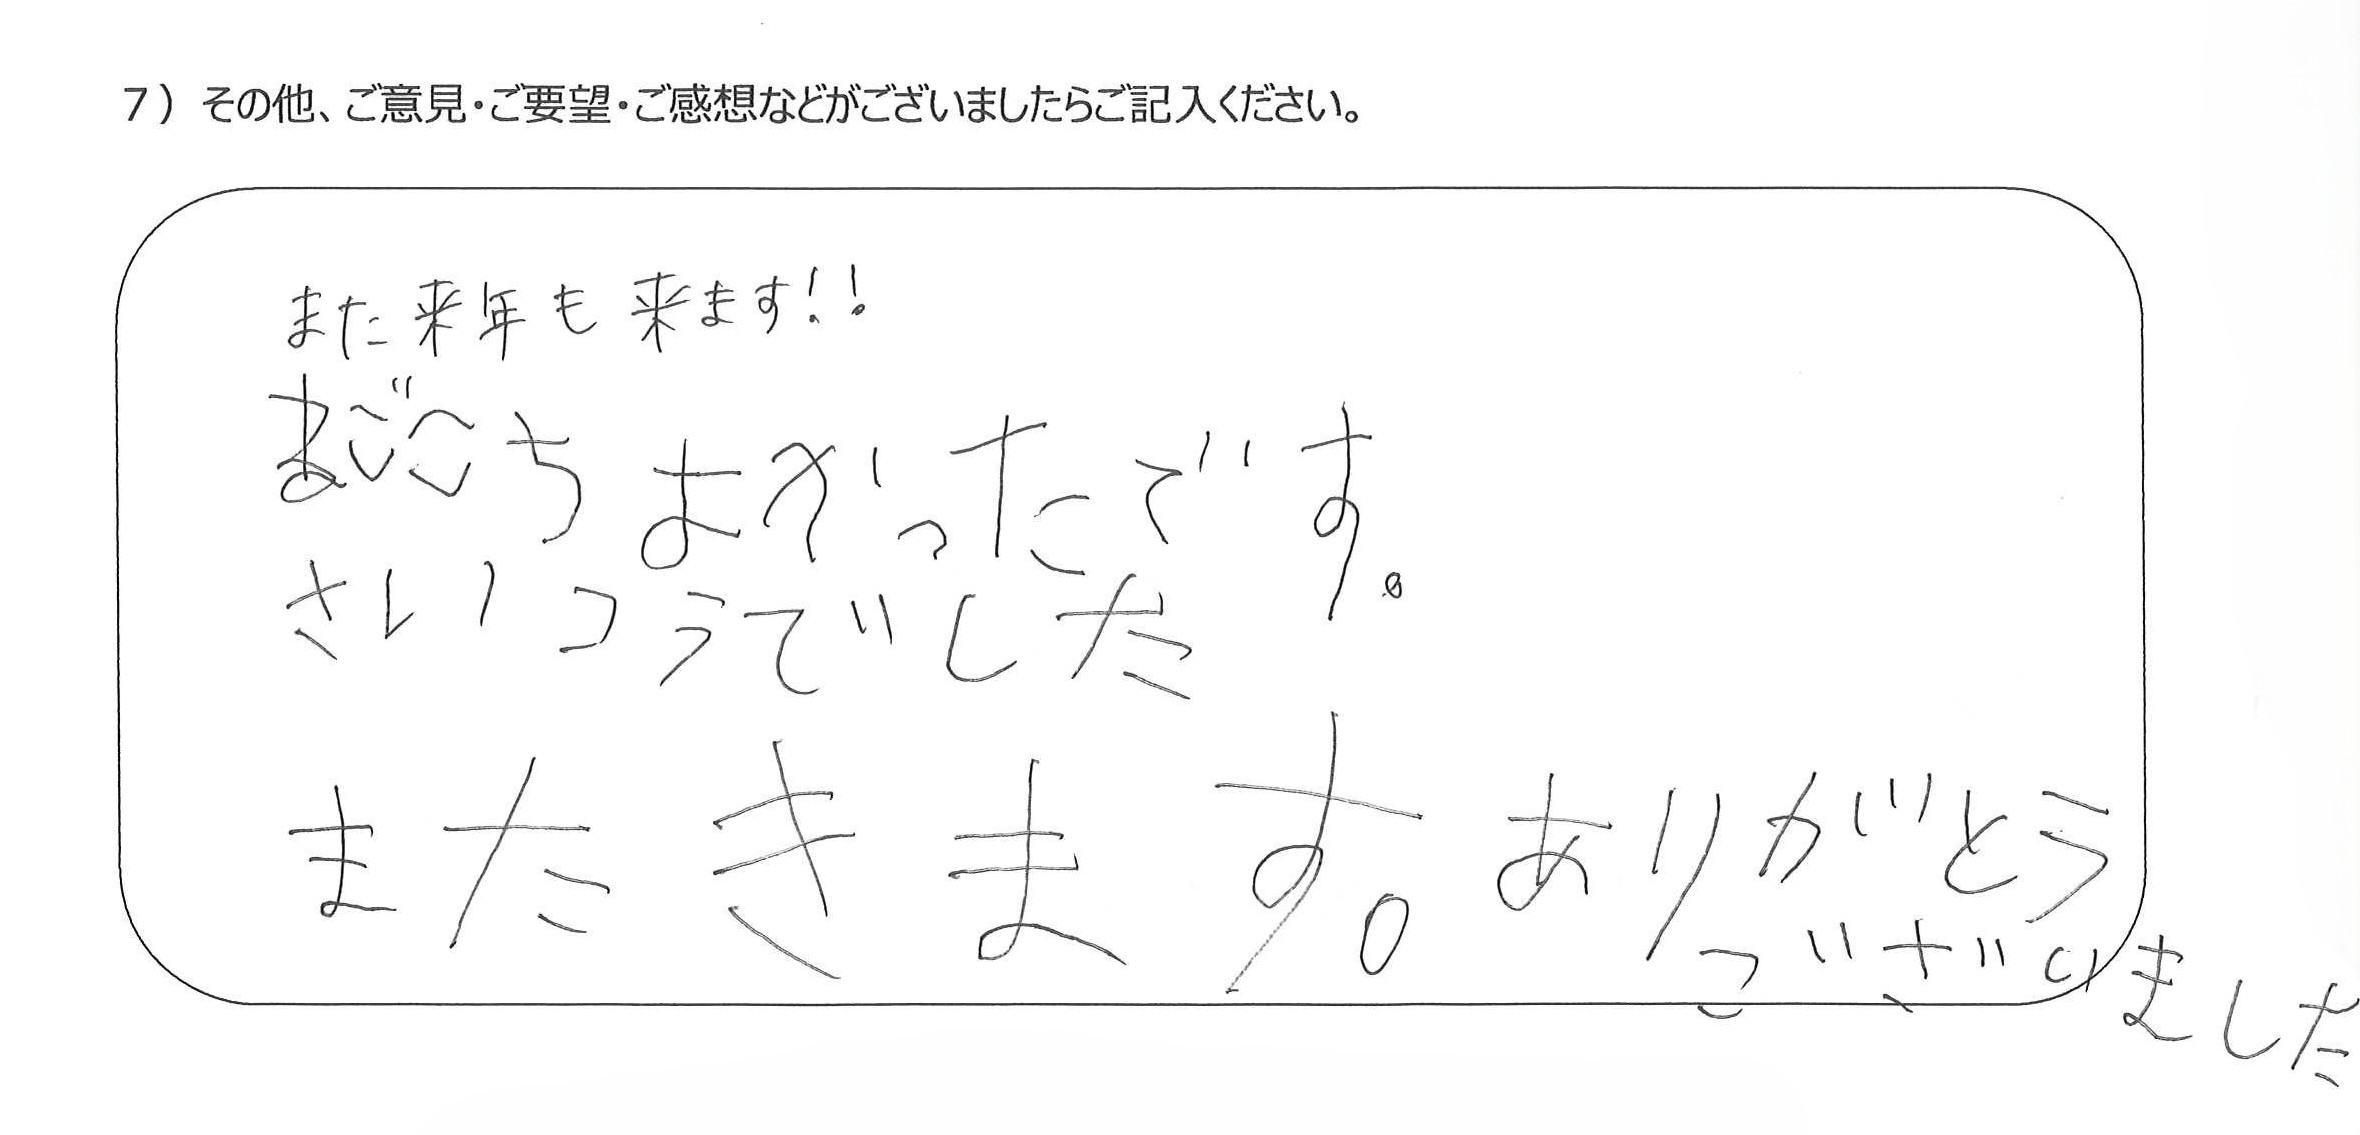 7）その他、ご意見・ご要望・ご感想などがございましたらご記入ください。
また来年も来ます!!
まごこち よかったです。
さいこうでした
またきます。ありがとう
ございました